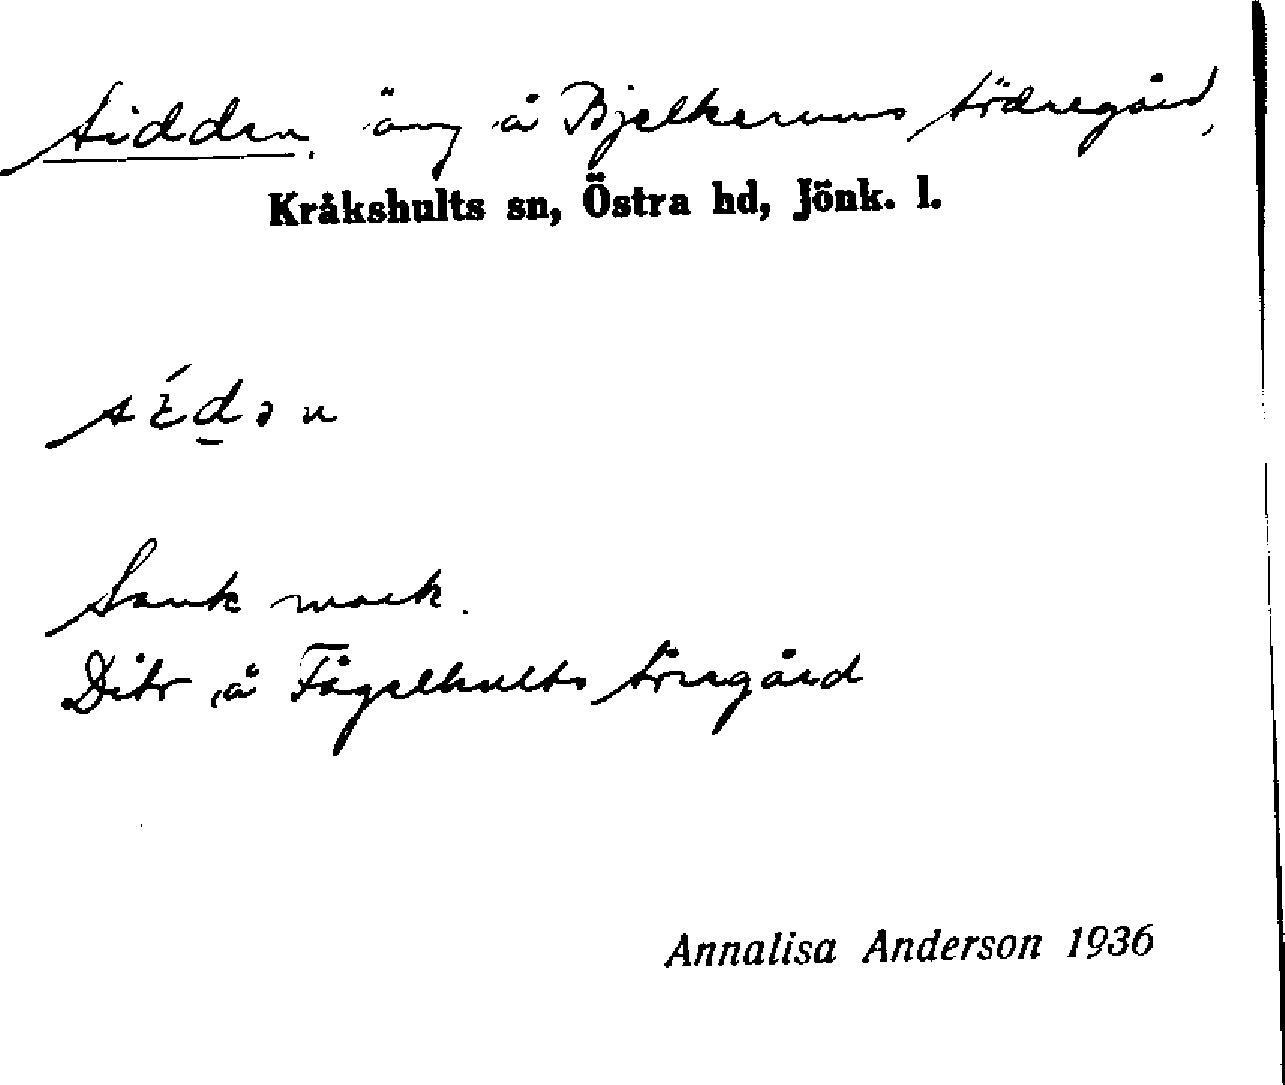 Sidden, äng å Bjelkerums Södregård,
Kråkshults sn, Östra hd, Jönk. l.
Sank mark.
Dito å Fågelhults Söregård
Annalisa Anderson 1936